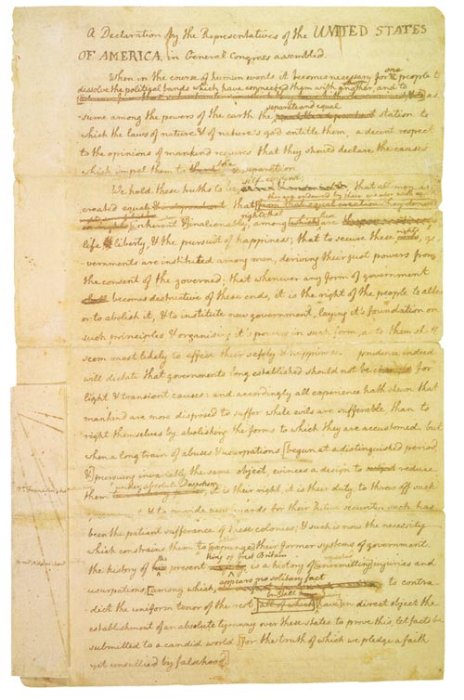 A Declaration by the Representatives of the UNITED STATES
OF AMERICA, in General Congress assembled.
When in the course of human events it becomes necessary for one people to
dissolve the political bands which have connected them with another, and to
as-
separate and equal
sume among the powers of the earth the station to
which the laws of nature & of nature's god entitle them, a decent respect
to the opinions of mankind requires that they should declare the causes
which impel them to the separation.
self-evident
We hold these truths to be that all men are
they are endowed by their creator with
created equal that
rights that
inherent & inalienable among which are
rights
life & liberty, & the pursuit of happiness; that to secure these go-
vernments are instituted among men, deriving their just powers from
the consent of the governed; that whenever any form of government
becomes destructive of these ends, it is the right of the people to alter
or to abolish it, & to institute new government, laying it's foundation on
such principles & organising it's powers in such form, as to them shall
seem most likely to effect their safety & happiness. prudence indeed
will dictate that governments long established should not be changed for
light & transient causes: and accordingly all experience hath shewn that
mankind are more disposed to suffer while evils are sufferable, than to
right themselves by abolishing the forms to which they are accustomed. but
when a long train of abuses & usurpations [begun at a distinguished period
&] pursuing invariably the same object, evinces a design to reduce
under absolute Despotism
them it is their right, it is their duty, to throw off such
& to provide new guards for their future security. such has
been the patient sufferance of these colonies; & such is now the necessity
which constrains them to [expunge] their former systems of government.
king of Great Britain
the history of the present is a history of [unremitting] injuries and
appears no solitary fact
usurpations, [among which, to contra-
dict the uniform tenor of the rest [all of which] have in direct object the
establishment of an absolute tyranny over these states. to prove this, let facts be
submitted to a candid world [for the truth of which we pledge a faith
yet unsullied by falsehood]